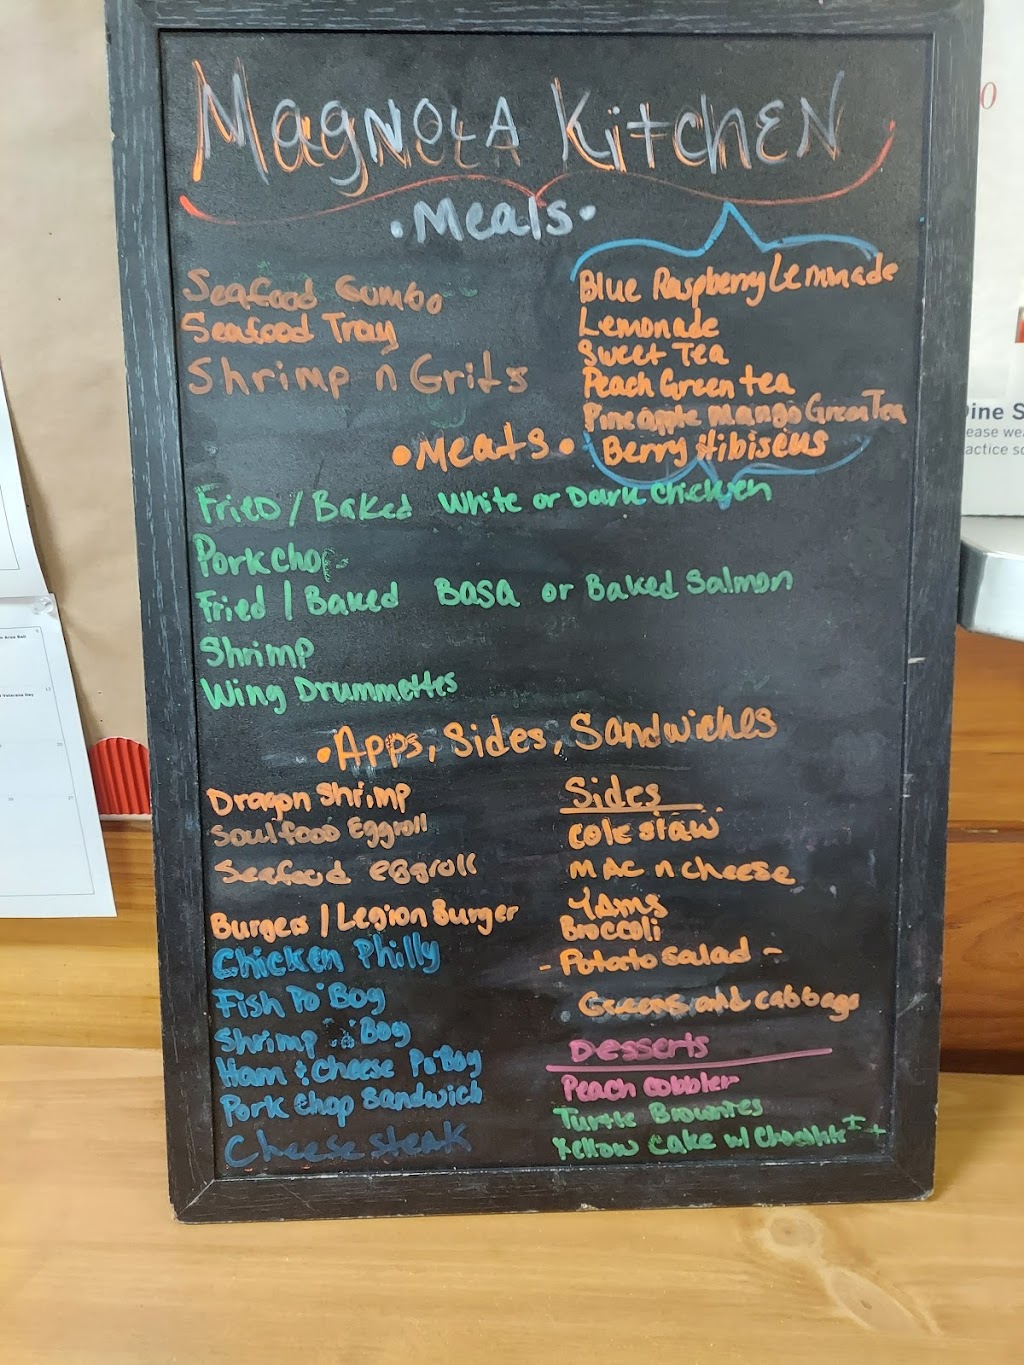 MAGNOLA KitchEN
• Meals •
Seafood Gumbo
Seafood Tray
Shrimp n Grits
Blue Raspberry Lemonade
Lemonade
Sweet Tea
Peach Green tea
Pineapple mango Green Tea
Berry Hibiscus
• Meats •
Fried / Baked White or Dark chicken
Pork chop
Fried / Baked BASA or Baked Salmon
Shrimp
Wing Drummettes
• Apps, Sides, Sandwiches
Dragon Shrimp
Soulfood Eggroll
Seafood eggroll
Burgers / Legion Burger
Chicken Philly
Fish Po'Boy
Shrimp 'Boy
Ham & Cheese Po'Boy
Pork chop Sandwich
Cheese steak
Sides
Cole slaw
MAC n cheese
YAMS
Broccoli
- Potato Salad -
Greens and cabbage
Desserts
Peach Cobbler
Turtle Brownies
Yellow Cake w/ Chocolate